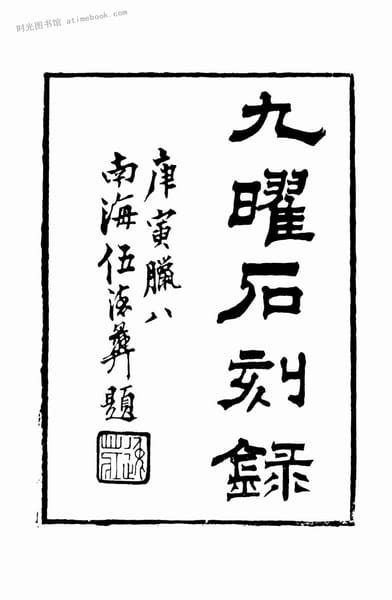 时光图书馆 atimebook.com
九曜石刻錄
庚寅臘八
南海伍德彝題